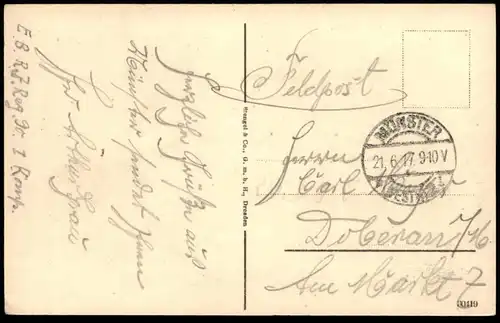 herzliche Grüße aus
Münster sendet Ihnen
Ihr Arthur Grau
E. B. R. J. Reg. Nr. 1 Komp.
Stengel & Co., G. m. b. H., Dresden
Feldpost
MÜNSTER
21.6.17. 9-10 V
(WESTF.)
Herrn
Carl
Doberan i/M
Am Markt 7